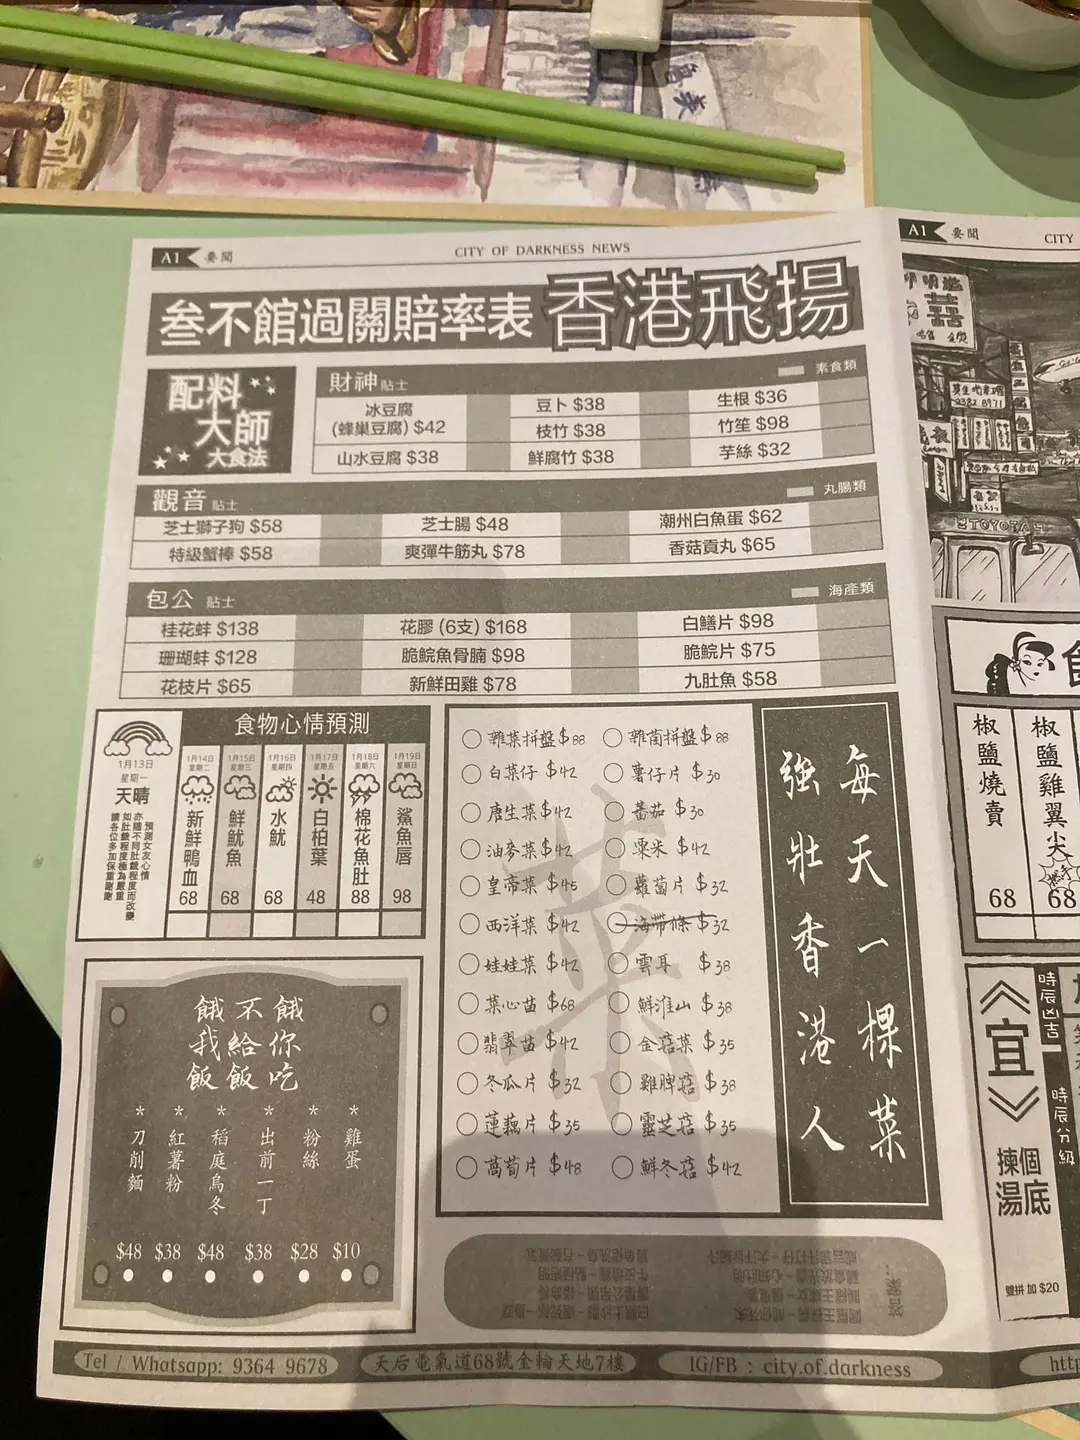 A1 要聞
CITY OF DARKNESS NEWS
叁不館過關賠率表 香港飛揚
配料
大師
大食法
財神 貼士 素食類
冰豆腐
(蜂巢豆腐) $42
豆卜 $38
生根 $36
枝竹 $38
竹笙 $98
山水豆腐 $38
鮮腐竹 $38
芋絲 $32
觀音 貼士 丸腸類
芝士獅子狗 $58
芝士腸 $48
潮州白魚蛋 $62
特級蟹棒 $58
爽彈牛筋丸 $78
香菇貢丸 $65
包公 貼士 海產類
桂花蚌 $138
花膠 (6支) $168
白鱔片 $98
珊瑚蚌 $128
脆鯇魚骨腩 $98
脆鯇片 $75
花枝片 $65
新鮮田雞 $78
九肚魚 $58
食物心情預測
1月13日
星期一
天晴
預測女友心情
亦隨不同肚餓程度而改變
如肚餓程度極為嚴重
請各位多加保重謝謝
1月14日
星期二
新鮮鴨血
68
1月15日
星期三
鮮魷魚
68
1月16日
星期四
水魷
68
1月17日
星期五
白柏葉
48
1月18日
星期六
棉花魚肚
88
1月19日
星期日
鯊魚唇
98
雜菜拼盤 $88
雜菌拼盤 $88
白菜仔 $42
薯仔片 $30
唐生菜 $42
蕃茄 $30
油麥菜 $42
粟米 $42
皇帝菜 $45
蘿蔔片 $32
西洋菜 $42
海帶條 $32
娃娃菜 $42
雲耳 $38
菜心苗 $68
鮮淮山 $38
翡翠苗 $42
金菇菜 $35
冬瓜片 $32
雞脾菇 $38
蓮藕片 $35
靈芝菇 $35
萵筍片 $48
鮮冬菇 $42
菜
每天一棵菜
強壯香港人
餓不餓
我給你
飯飯吃
* 刀削麵 $48
* 紅薯粉 $38
* 稻庭烏冬 $48
* 出前一丁 $38
* 粉絲 $28
* 雞蛋 $10
Tel / Whatsapp: 9364 9678
天后電氣道68號金輪天地7樓
IG/FB : city.of.darkness
http
A1 要聞
CITY
2382 8971
TOYOTA
食
椒鹽燒賣
68
椒鹽雞翼尖
68
《宜》
時辰凶吉
時辰分級
揀個
湯底
雙拼 加 $20